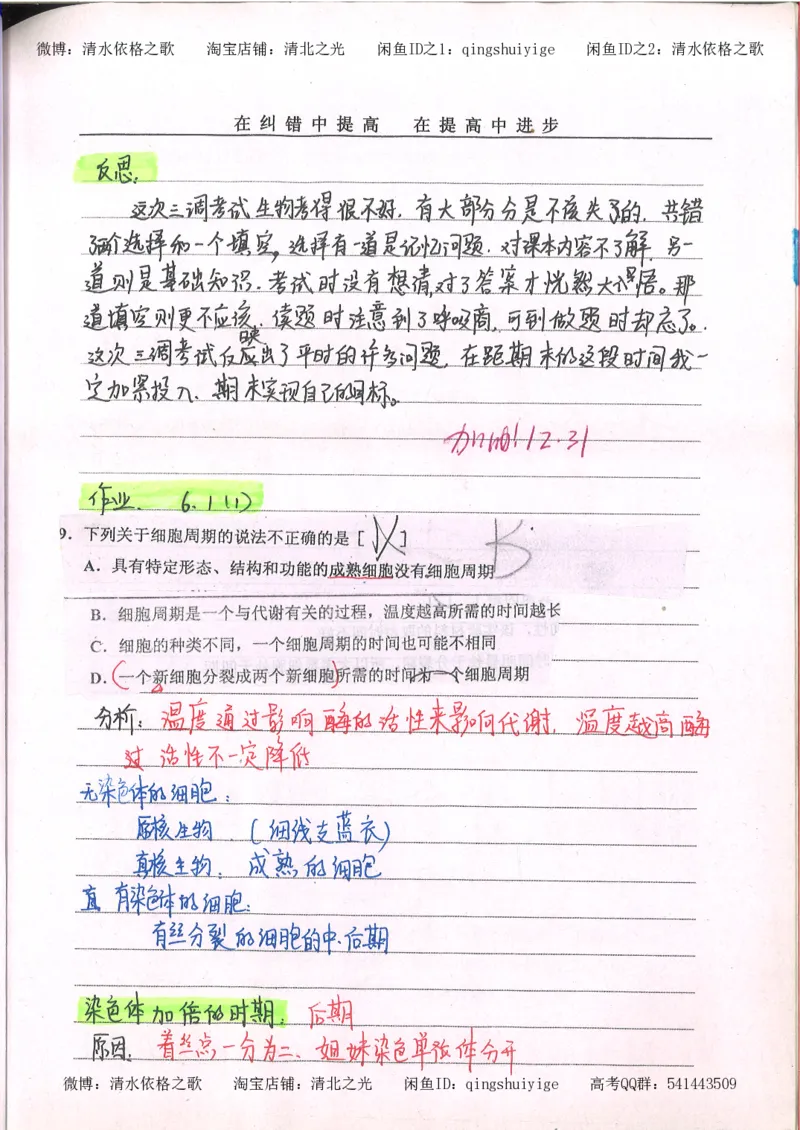 微博：清水依格之歌 淘宝店铺：清北之光 闲鱼ID之1：qingshuiyige 闲鱼ID之2：清水依格之歌
在纠错中提高 在提高中进步
反思：
这次三调考试生物考得很不好，有大部分分是不该失了的，共错
了两个选择和一个填空，选择有一道是记忆问题，对课本内容不了解，另一
道则是基础知识，考试时没有想清，对了答案才恍然大悟。那
道填空则更不应该，读题时注意到了呼吸商，可到做题时却忘了。
这次三调考试反映出了平时的许多问题，在距期末的这段时间我一
定加紧投入、期末实现自己的目标。
加油！12.31
作业 6.1(1)
9．下列关于细胞周期的说法不正确的是［ ］ B
A．具有特定形态、结构和功能的成熟细胞没有细胞周期
B．细胞周期是一个与代谢有关的过程，温度越高所需的时间越长
C．细胞的种类不同，一个细胞周期的时间也可能不相同
D．一个新细胞分裂成两个新细胞所需的时间为一个细胞周期
分析：温度通过影响酶的活性来影响代谢，温度越高酶
活性不一定降低
无染色体的细胞：
原核生物（细线支蓝衣）
真核生物：成熟的细胞
有染色体的细胞：
有丝分裂的细胞的中、后期
染色体加倍的时期：后期
原因：着丝点一分为二、姐妹染色单体分开
微博：清水依格之歌 淘宝店铺：清北之光 闲鱼ID：qingshuiyige 高考QQ群：541443509